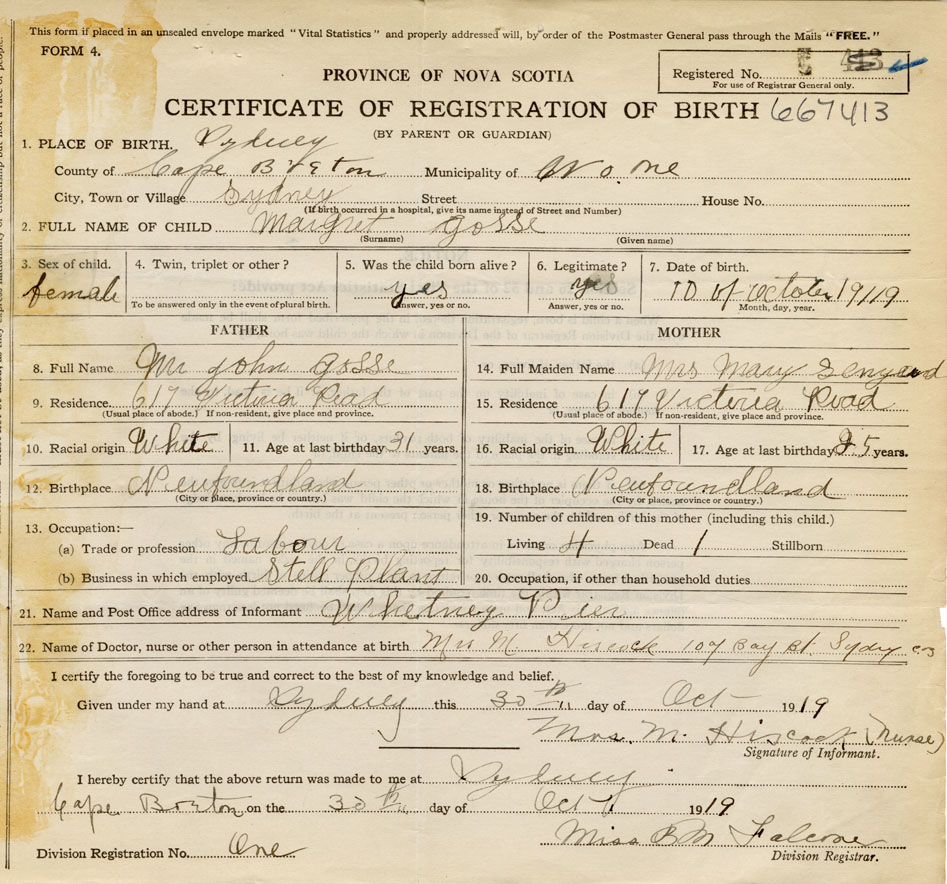 This form if placed in an unsealed envelope marked "Vital Statistics" and properly addressed will, by order of the Postmaster General pass through the Mails "FREE."
FORM 4.
Registered No.
For use of Registrar General only.
PROVINCE OF NOVA SCOTIA
CERTIFICATE OF REGISTRATION OF BIRTH 667413
(BY PARENT OR GUARDIAN)
1. PLACE OF BIRTH, Sydney
County of Cape Breton Municipality of No. one
City, Town or Village Sydney Street House No.
(If birth occurred in a hospital, give its name instead of Street and Number)
2. FULL NAME OF CHILD Margret Gosse
(Surname) (Given name)
3. Sex of child. 4. Twin, triplet or other? 5. Was the child born alive? 6. Legitimate? 7. Date of birth.
female yes yes 10 of October 1919
To be answered only in the event of plural birth. Answer, yes or no. Answer, yes or no. Month, day, year.
FATHER MOTHER
8. Full Name Mr John Gosse 14. Full Maiden Name Mrs Mary
9. Residence. 617 Victoria Road 15. Residence 617 Victoria Road
(Usual place of abode.) If non-resident, give place and province. (Usual place of abode.) If non-resident, give place and province.
10. Racial origin White 11. Age at last birthday 31 years. 16. Racial origin White 17. Age at last birthday 25 years.
12. Birthplace Newfoundland 18. Birthplace Newfoundland
(City or place, province or country.) (City or place, province or country.)
13. Occupation:— 19. Number of children of this mother (including this child.)
(a) Trade or profession Labour Living 4 Dead 1 Stillborn
(b) Business in which employed Stell Plant 20. Occupation, if other than household duties
21. Name and Post Office address of Informant Whetney Pier
22. Name of Doctor, nurse or other person in attendance at birth Mrs M. Hiscock 107 Bay St. Sydney C B
I certify the foregoing to be true and correct to the best of my knowledge and belief.
Given under my hand at Sydney this 30th day of Oct 1919
Mrs. M. Hiscock (Nurse)
Signature of Informant.
I hereby certify that the above return was made to me at Sydney
Cape Breton on the 30th day of Oct 1919
Miss B M Falconer
Division Registration No. One
Division Registrar.